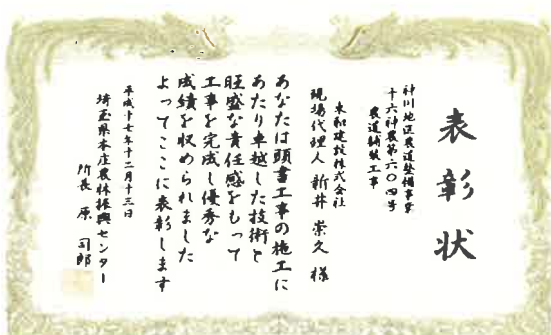 表彰状
神川地区農道整備事業
十六神農第六〇四号
農道舗装工事
東和建設株式会社
現場代理人 新井崇久様
あなたは頭書工事の施工に
あたり卓越した技術と
旺盛な責任感をもって
工事を完成し優秀な
成績を収められました
よってここに表彰します
平成十七年十二月十三日
埼玉県本庄農林振興センター
所長 原 司郎